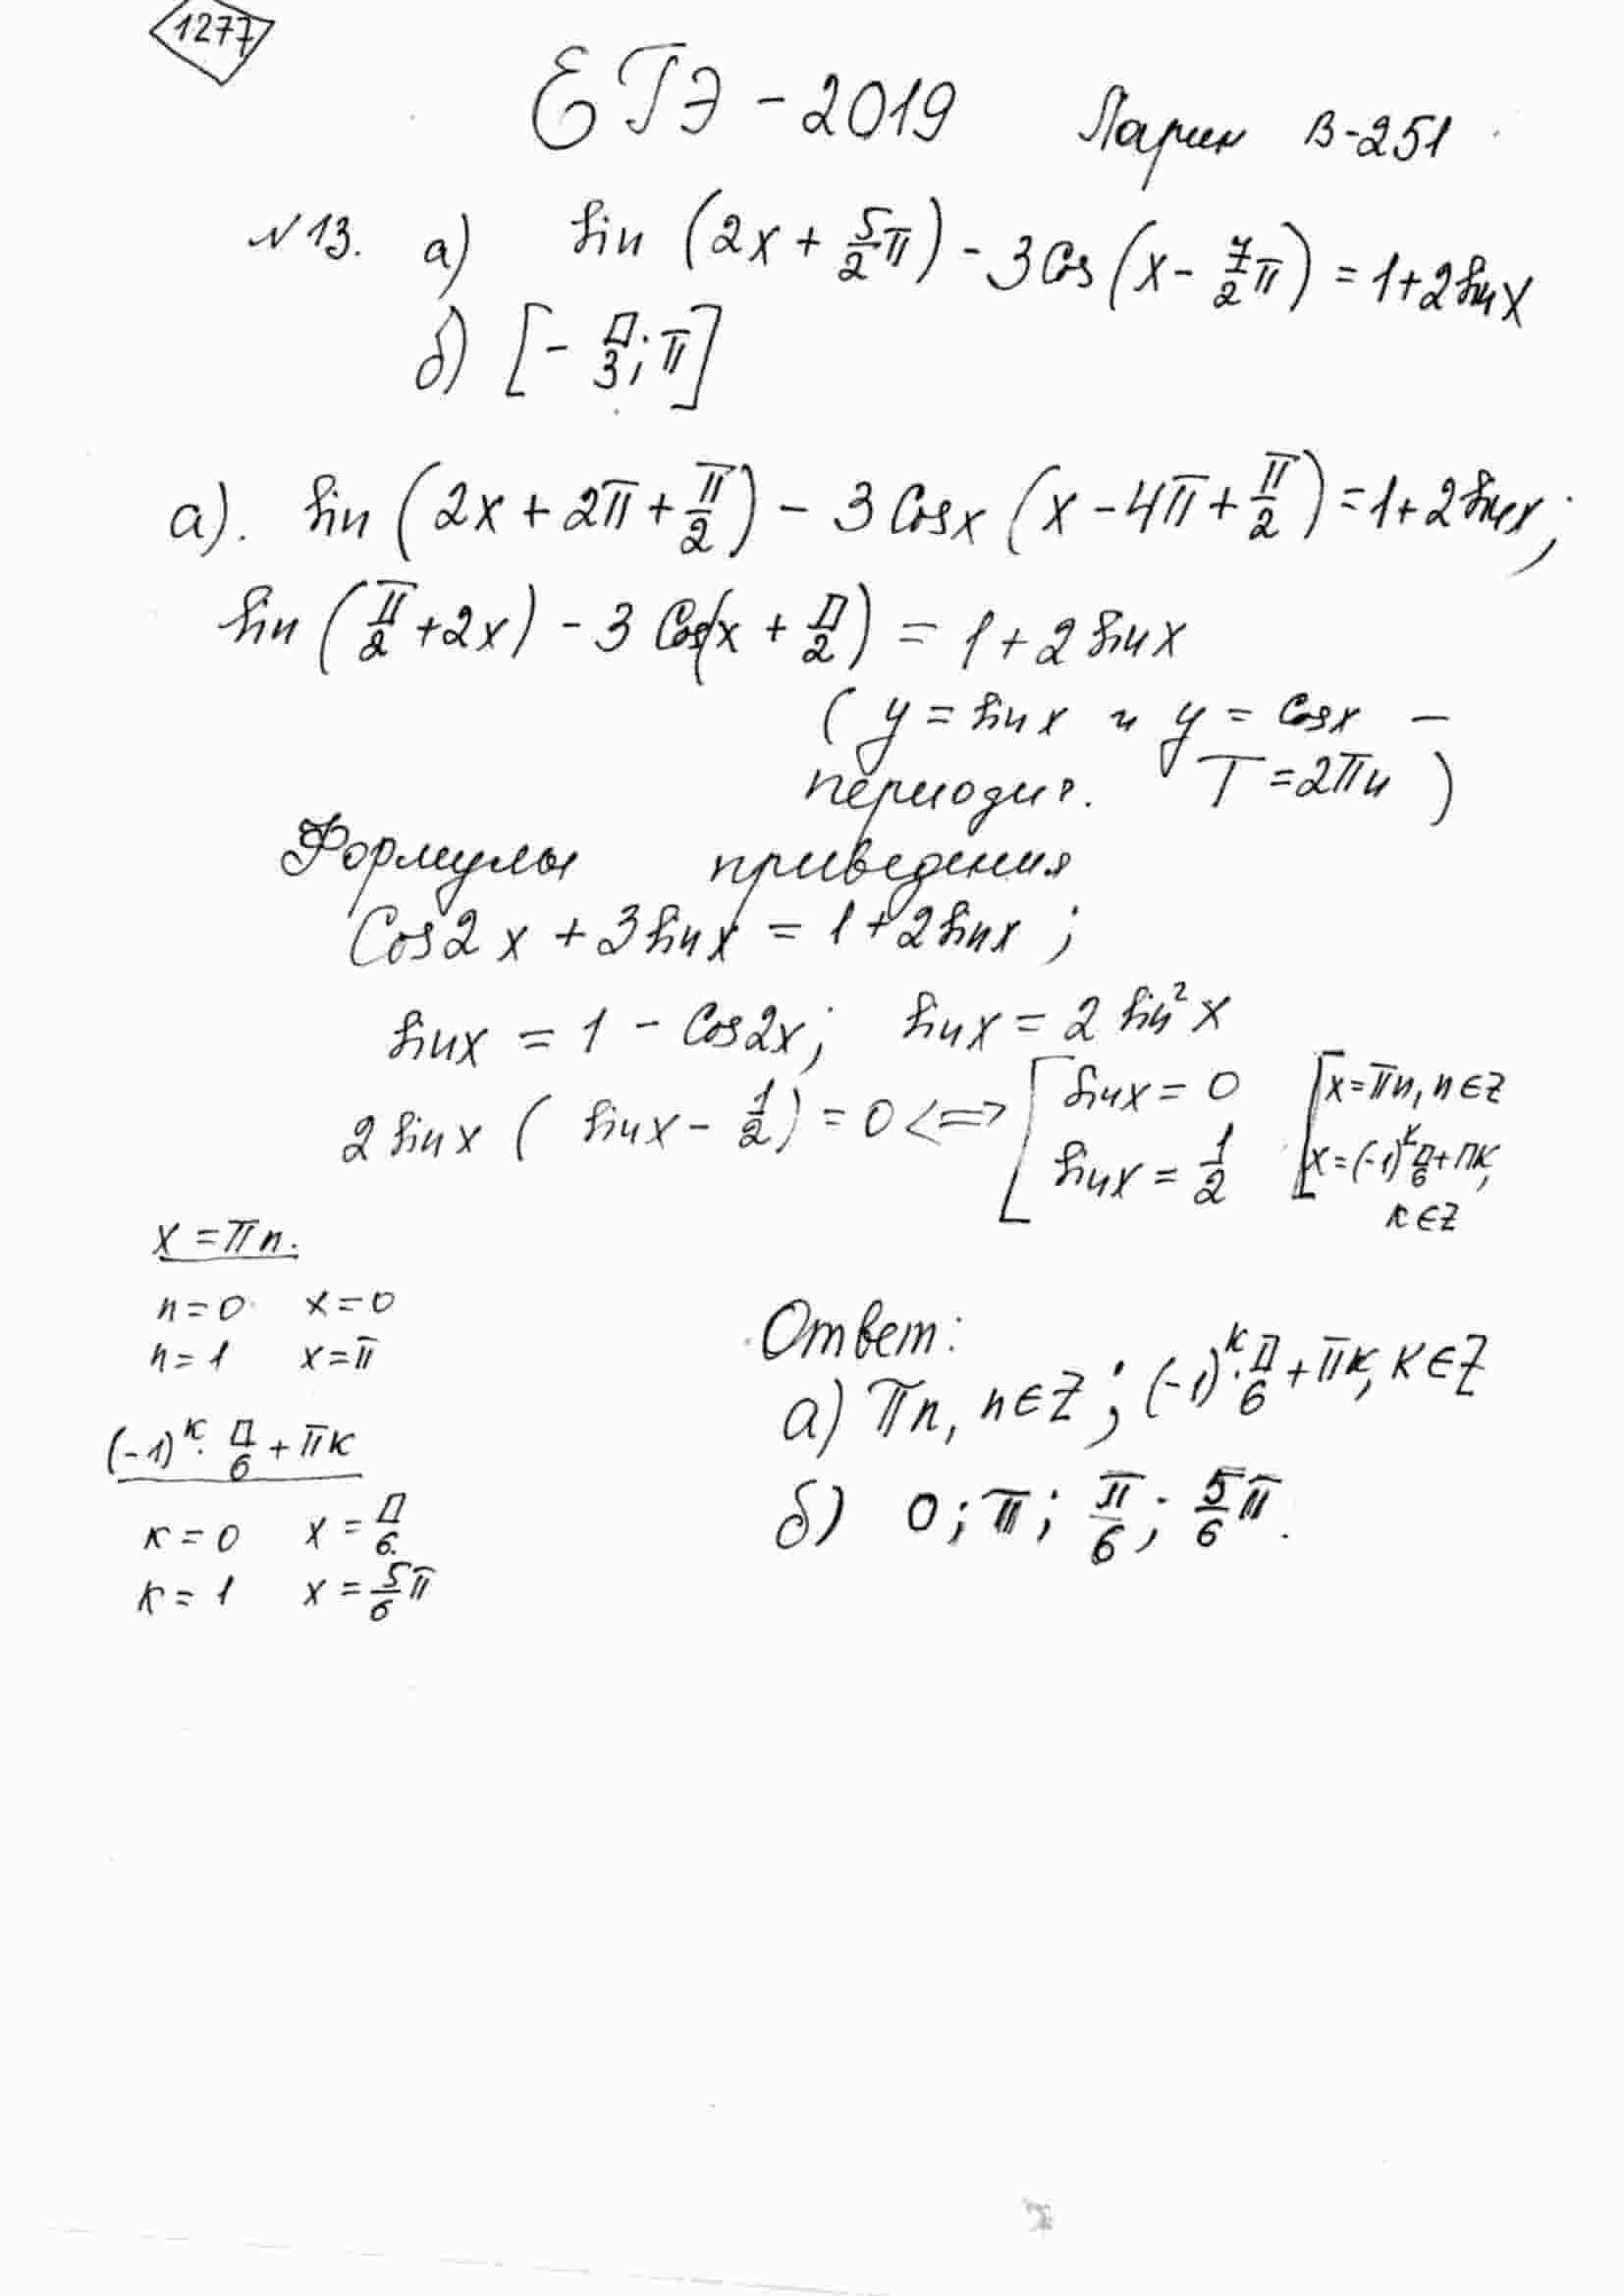 1277
ЕГЭ - 2019 Ларин В-251
№13. а) sin (2x + 5/2 π) - 3 cos (x - 7/2 π) = 1 + 2 sin x
б) [- π/3; π]
а). sin (2x + 2π + π/2) - 3 cos x (x - 4π + π/2) = 1 + 2 sin x;
sin (π/2 + 2x) - 3 cos(x + π/2) = 1 + 2 sin x
(y = sin x и y = cos x -
периодич. T = 2πn)
Формулы приведения
cos 2x + 3 sin x = 1 + 2 sin x;
sin x = 1 - cos 2x; sin x = 2 sin² x
2 sin x (sin x - 1/2) = 0 <=> [ sin x = 0 [ x = πn, n ∈ Z
sin x = 1/2 x = (-1)^k π/6 + πk,
k ∈ Z
x = πn.
n = 0 x = 0
n = 1 x = π
(-1)^k · π/6 + πk
k = 0 x = π/6.
k = 1 x = 5/6 π
Ответ:
а) πn, n ∈ Z; (-1)^k · π/6 + πk, k ∈ Z
б) 0; π; π/6; 5/6 π.